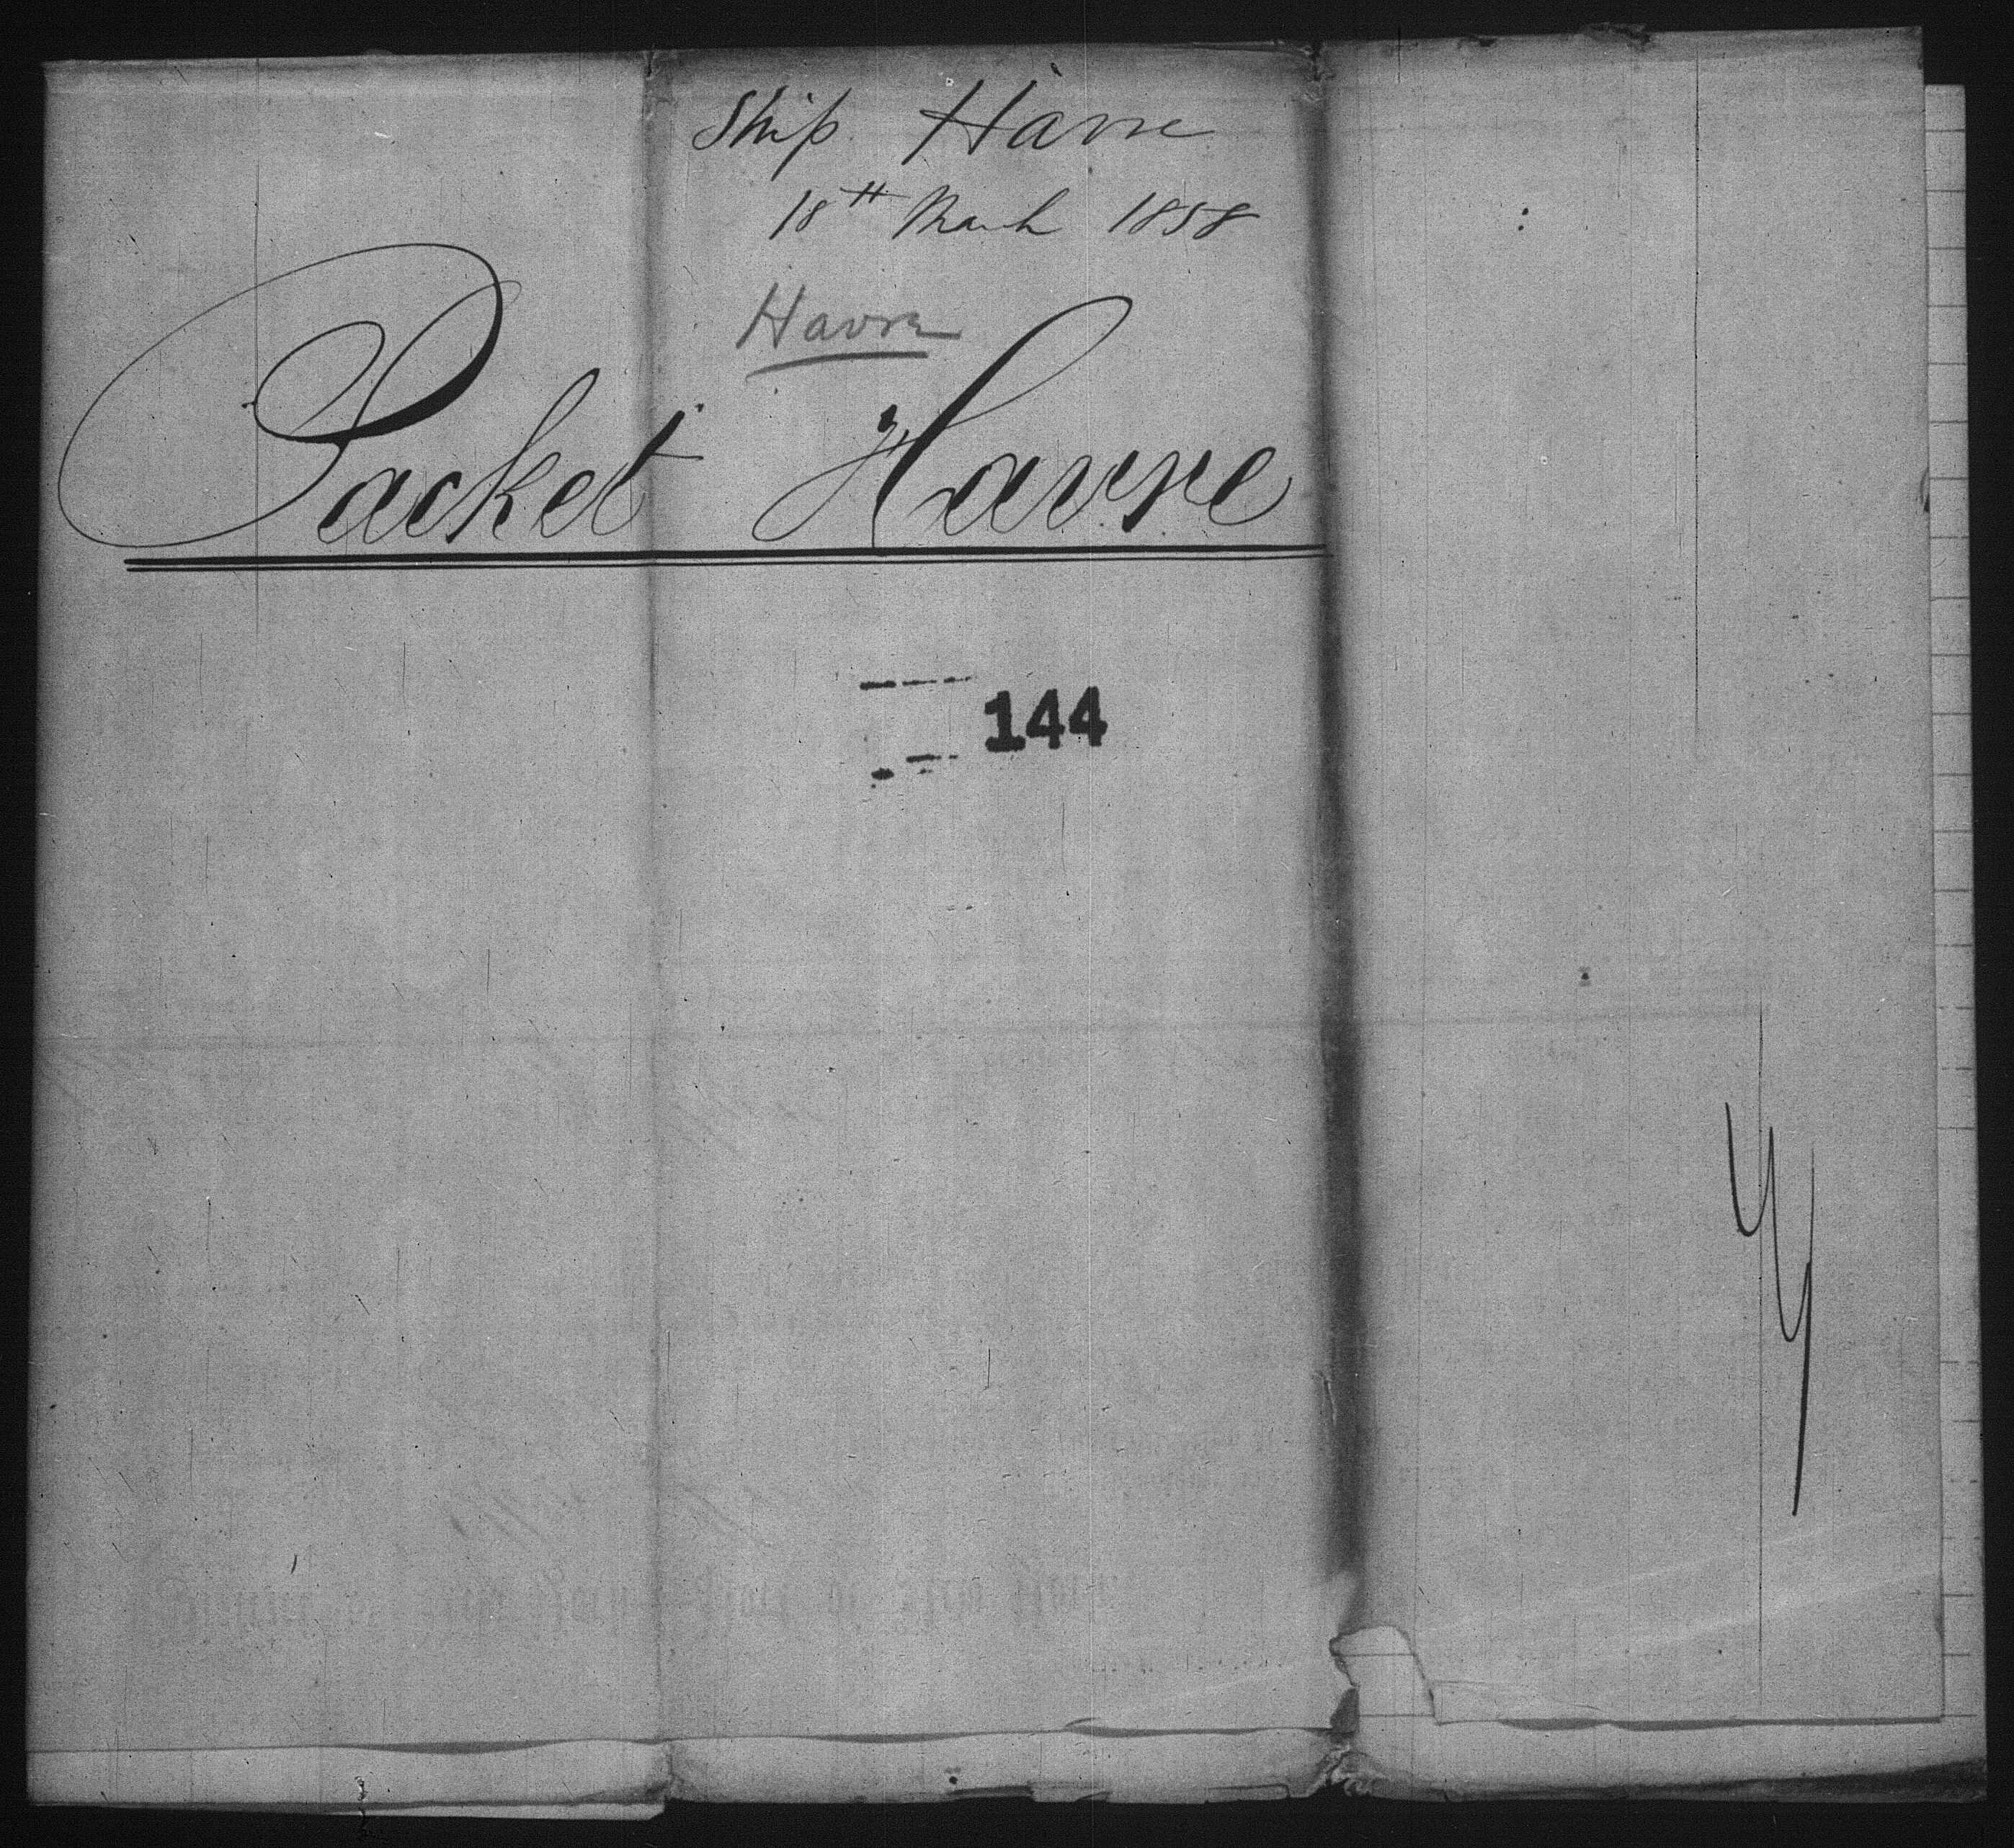 Ship Havre
18th March 1858
Havre
Packet Havre
144